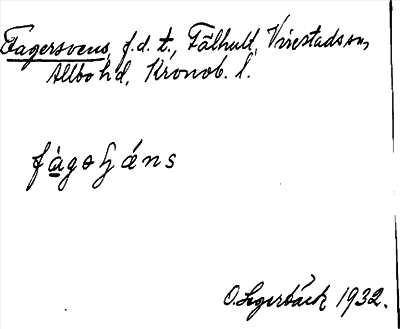 Fagersvens, f.d. t., Fälhult, Virestads sn,
Allbo hd, Kronob. l.
fàgsháns
1932.